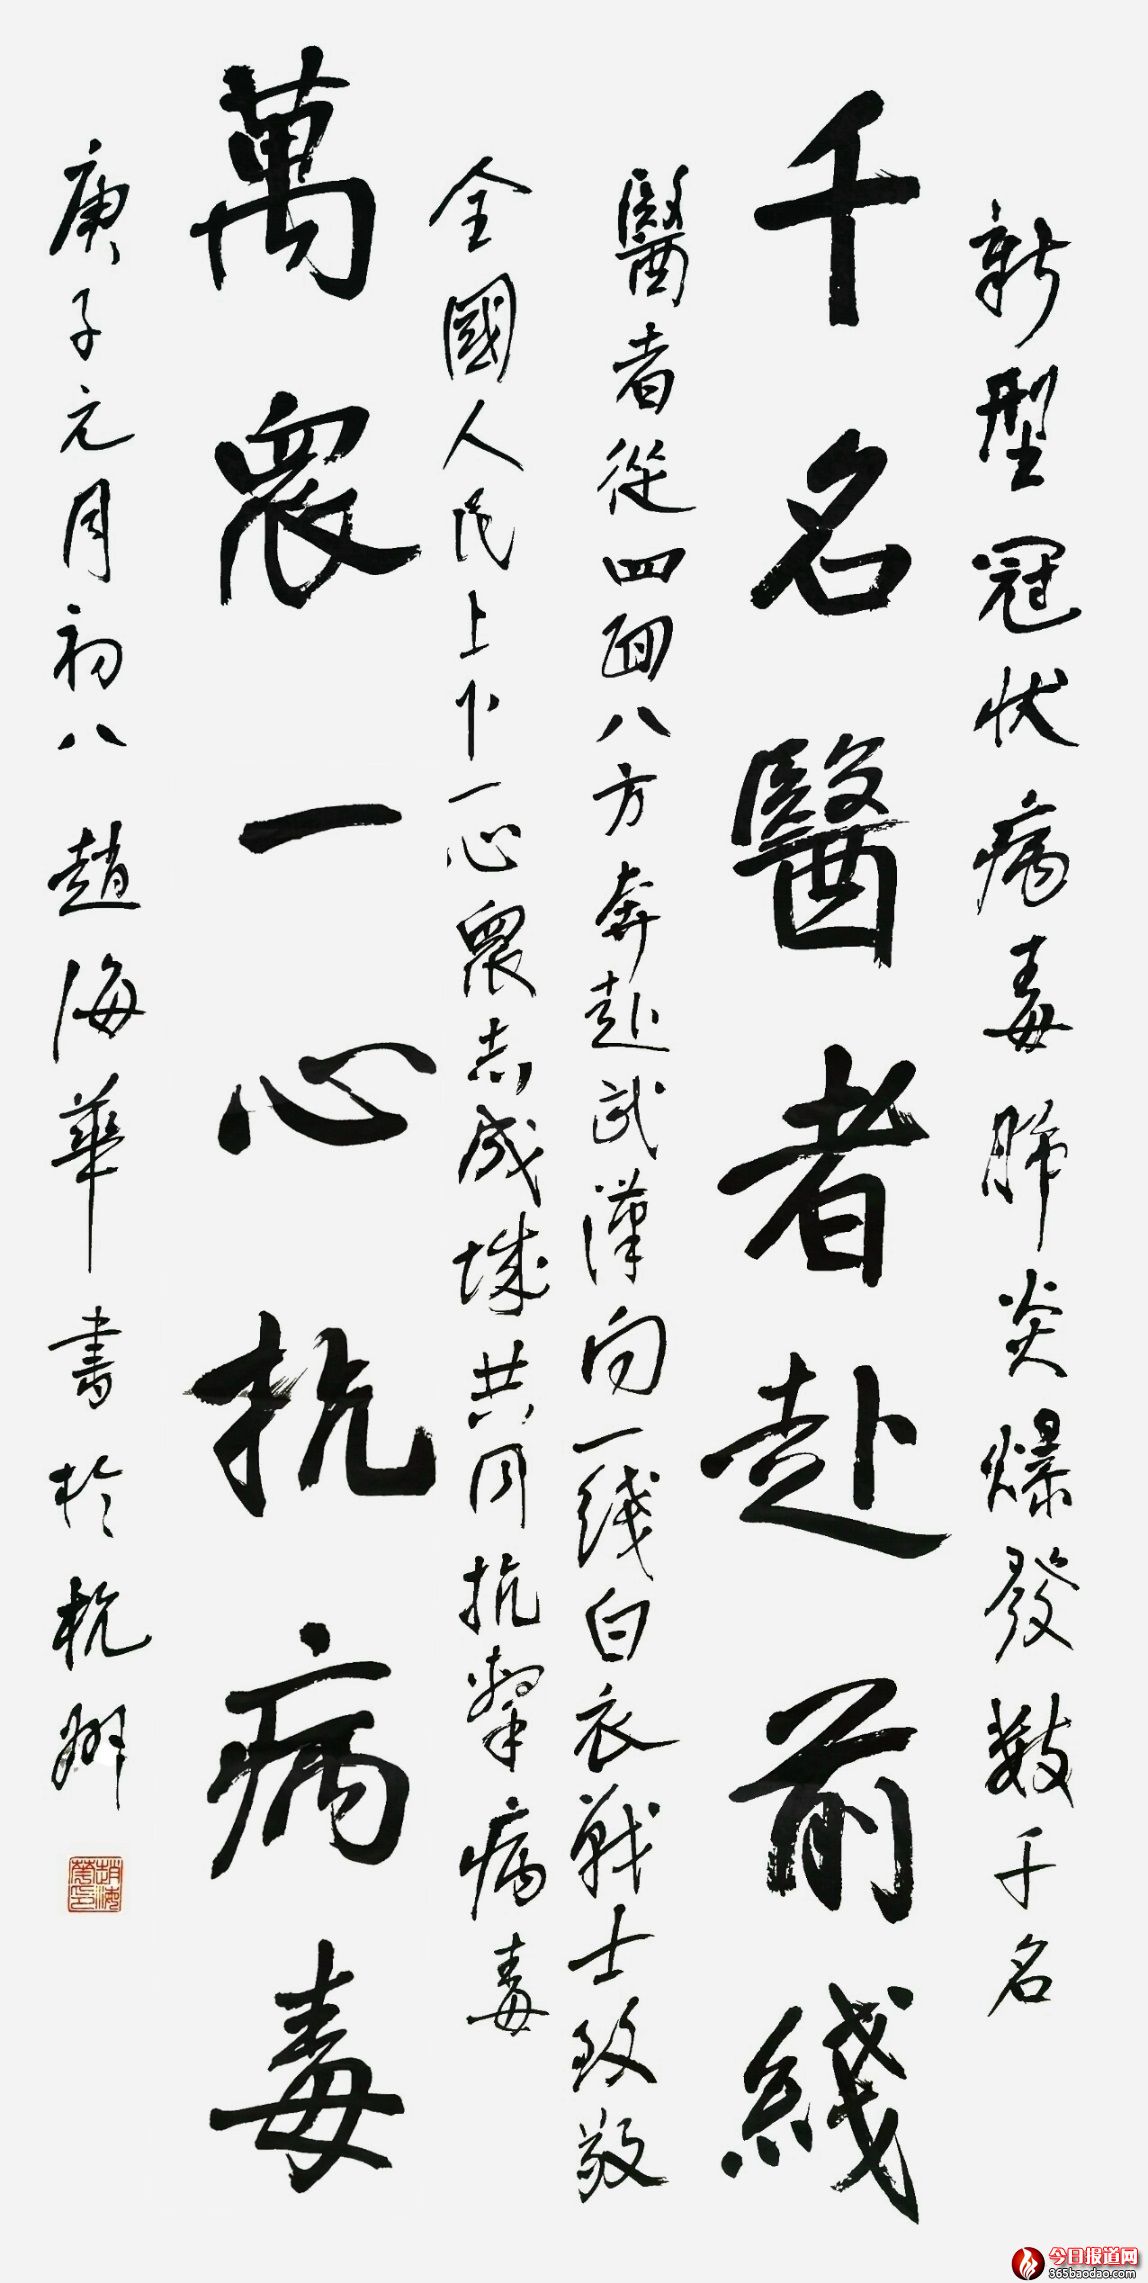 新型冠状病毒肺炎爆發数千名
千名醫者赴前綫
醫者從四面八方奔赴武漢向一綫白衣戰士致敬
全國人民上下一心眾志成城共同抗擊病毒
萬眾一心抗病毒
庚子元月初八趙海華書於杭州
趙海華印
今日报道网
365baodao.com